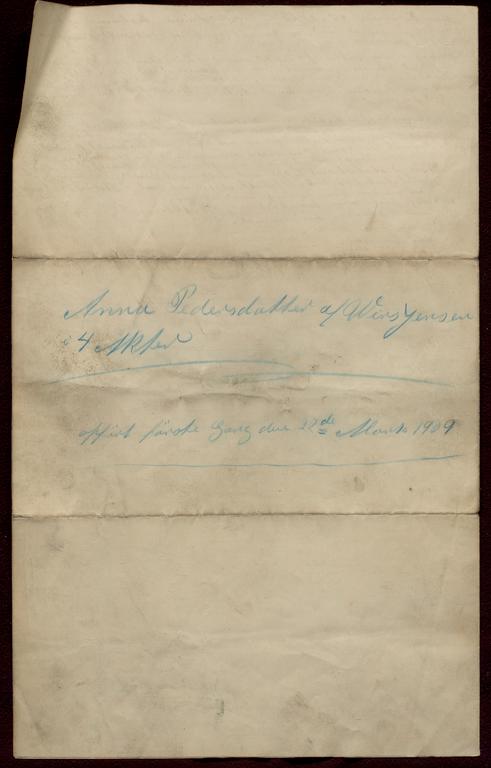 Anna Pedersdotter af Wiers Jensen
i 4 Akter
opfört første Gang den 22de Marts 1909